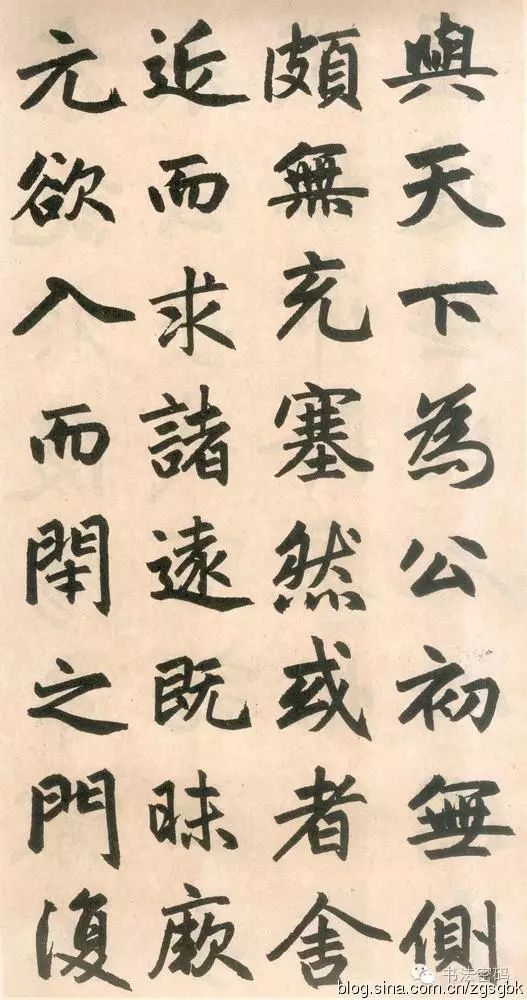 與天下為公初無側
頗無充塞然或者舍
近而求諸遠既昧厥
元欲入而閇之門復
书法密码
blog.sina.com.cn/zgsgbk